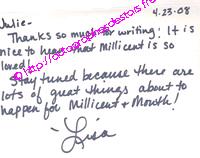 4-23-08
Julie-
Thanks so much for writing! It is
nice to hear that Millicent is so
loved!
Stay tuned because there are
lots of great things about to
happen for Millicent & Mouth!
Lisa